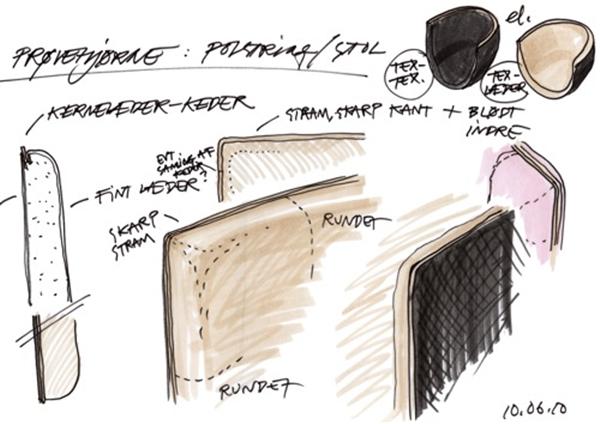 PRØVEHJØRNE : POLSTRING/STOL
el.
TEX-
TEX.
TEX-
LÆDER
KERNELÆDER-KEDER
STRAM, SKARP KANT + BLØDT
INDRE
EVT.
SAMLING AF
KEDER?
FINT LÆDER
SKARP
STRAM
RUNDET
RUNDET
10.06.10